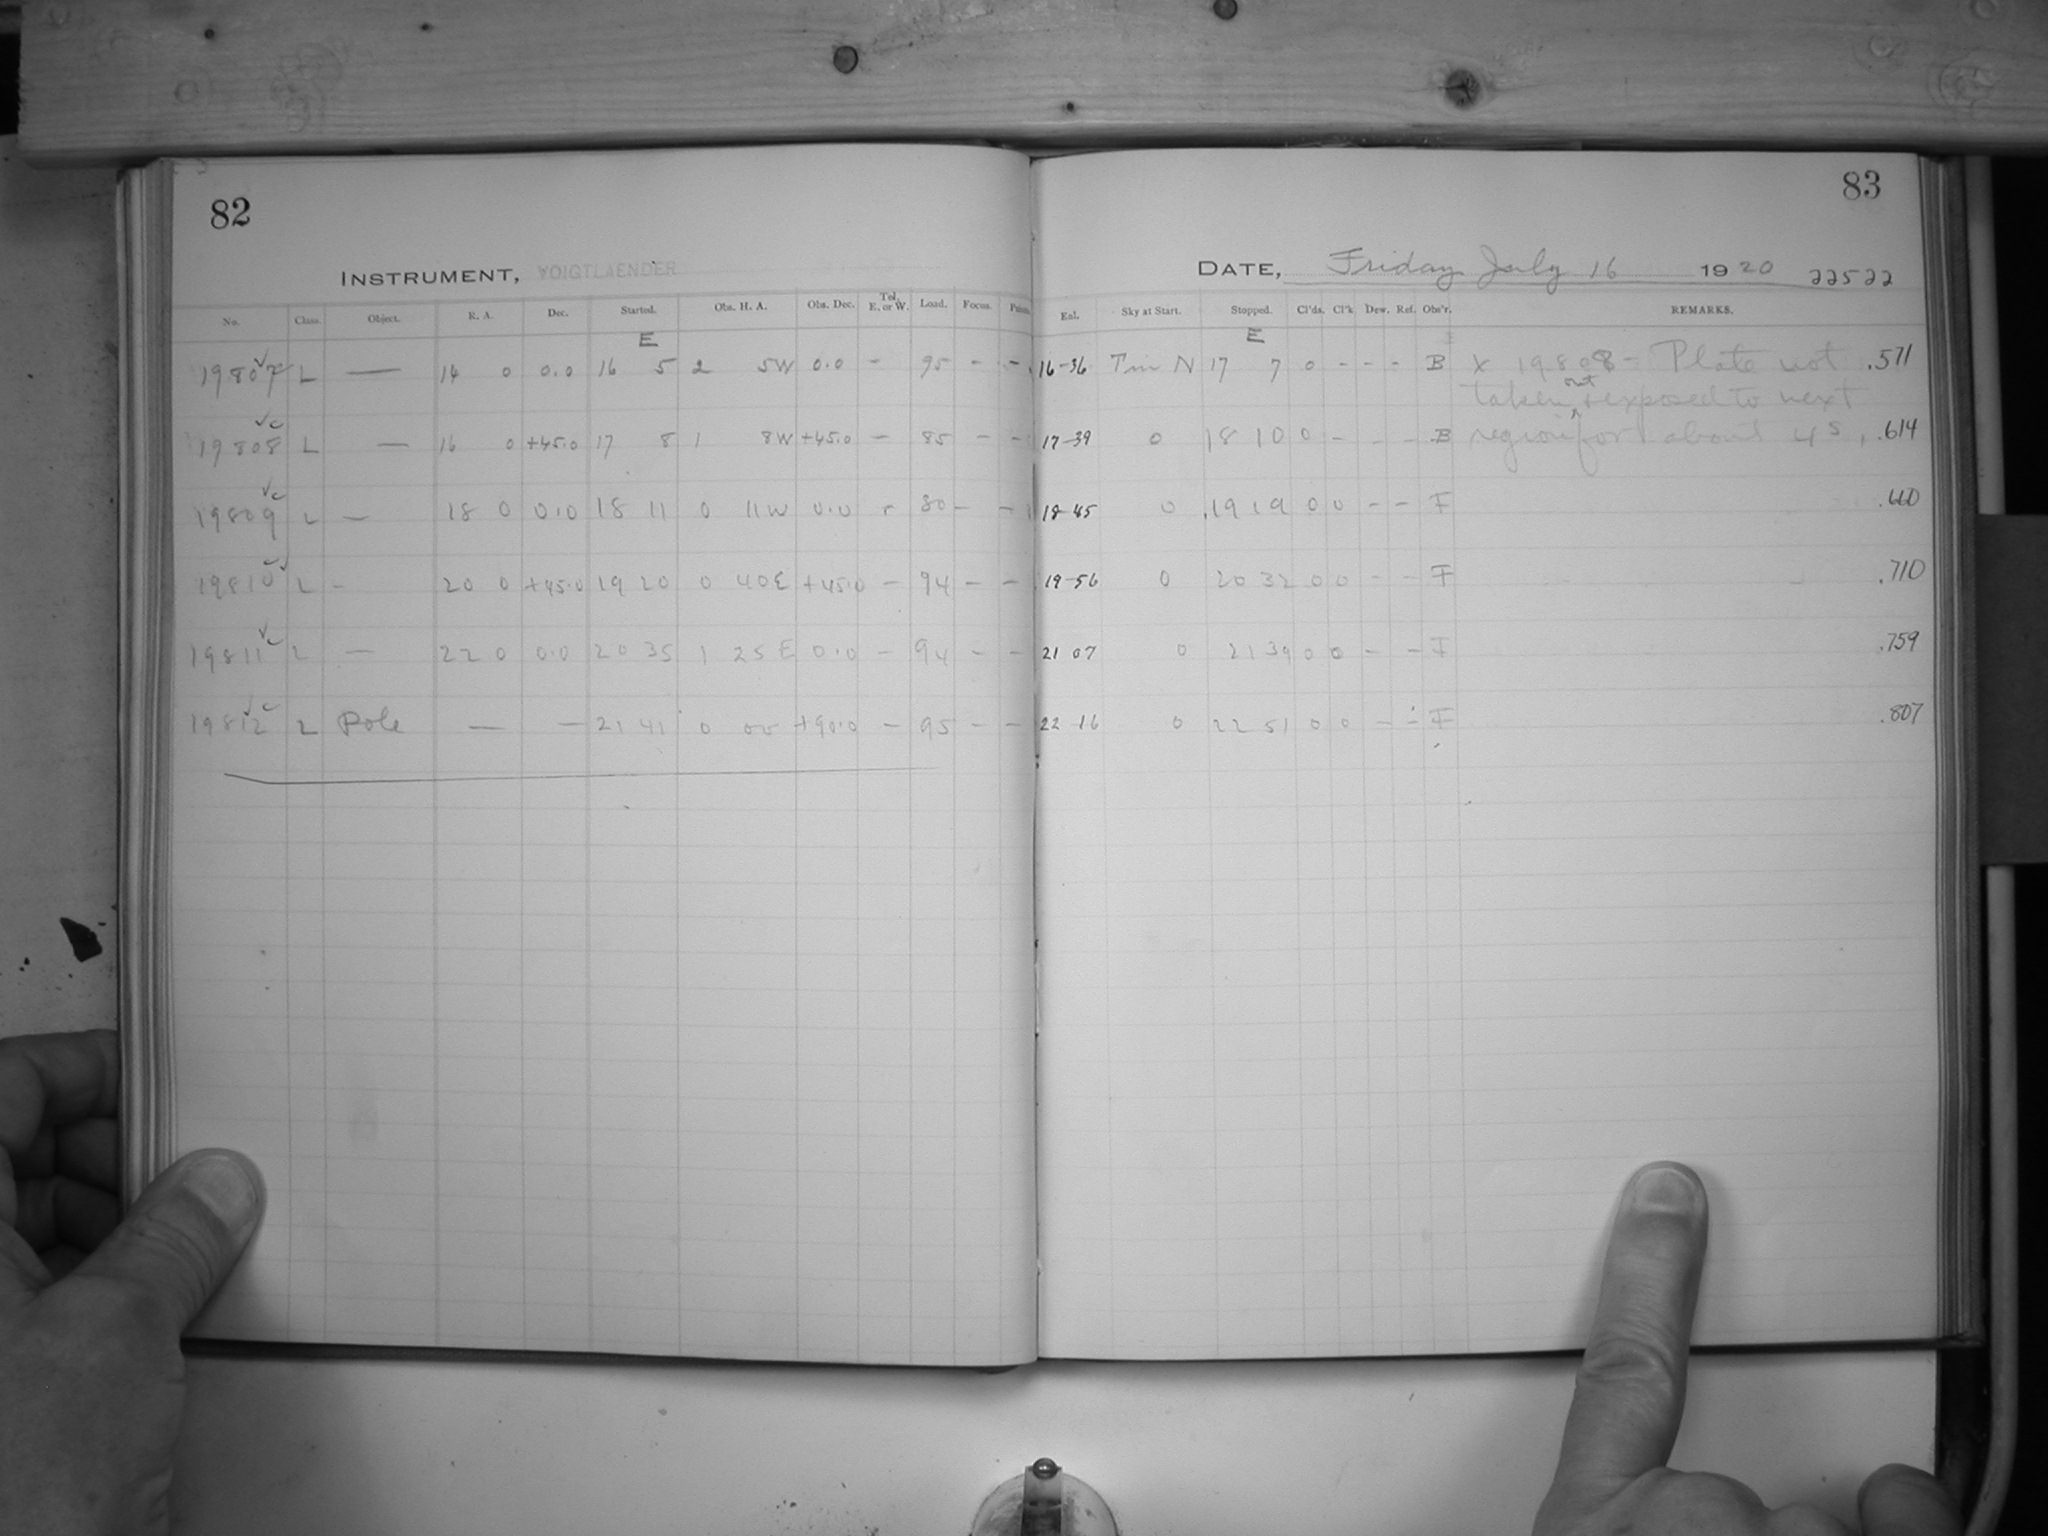 82
INSTRUMENT, VOIGTLAENDER
No. Class. Object. R. A. Dec. Started. Obs. H. A. Obs. Dec. Tel. E. or W. Load. Focus.
E
19807 L — 14 0 0.0 16 5 2 5W 0.0 - 95 - -
19808 L — 16 0 +45.0 17 8 1 8W +45.0 - 85 - -
19809 L — 18 0 0.0 18 11 0 11W 0.0 - 80 - -
19810 L - 20 0 +45.0 19 20 0 40E +45.0 - 94 - -
19811 L — 22 0 0.0 20 35 1 25E 0.0 - 94 - -
19812 L Pole — — 21 41 0 00 +90.0 - 95 - -
83
DATE, Friday July 16 1920 22522
Sky at Start. Stopped. Cl'ds. Cl'k Dew. Ref. Obs'r. REMARKS.
E
16-36 Tm N 17 7 0 - - - B x 19808 = Plate not .571
taken out & exposed to next
17-39 0 18 10 0 - - - B region for about 4 s, .614
18-45 0 19 19 0 0 - - F .660
19-56 0 20 32 0 0 - - F .710
21 07 0 21 39 0 0 - - F .759
22 16 0 22 51 0 0 - - F .807